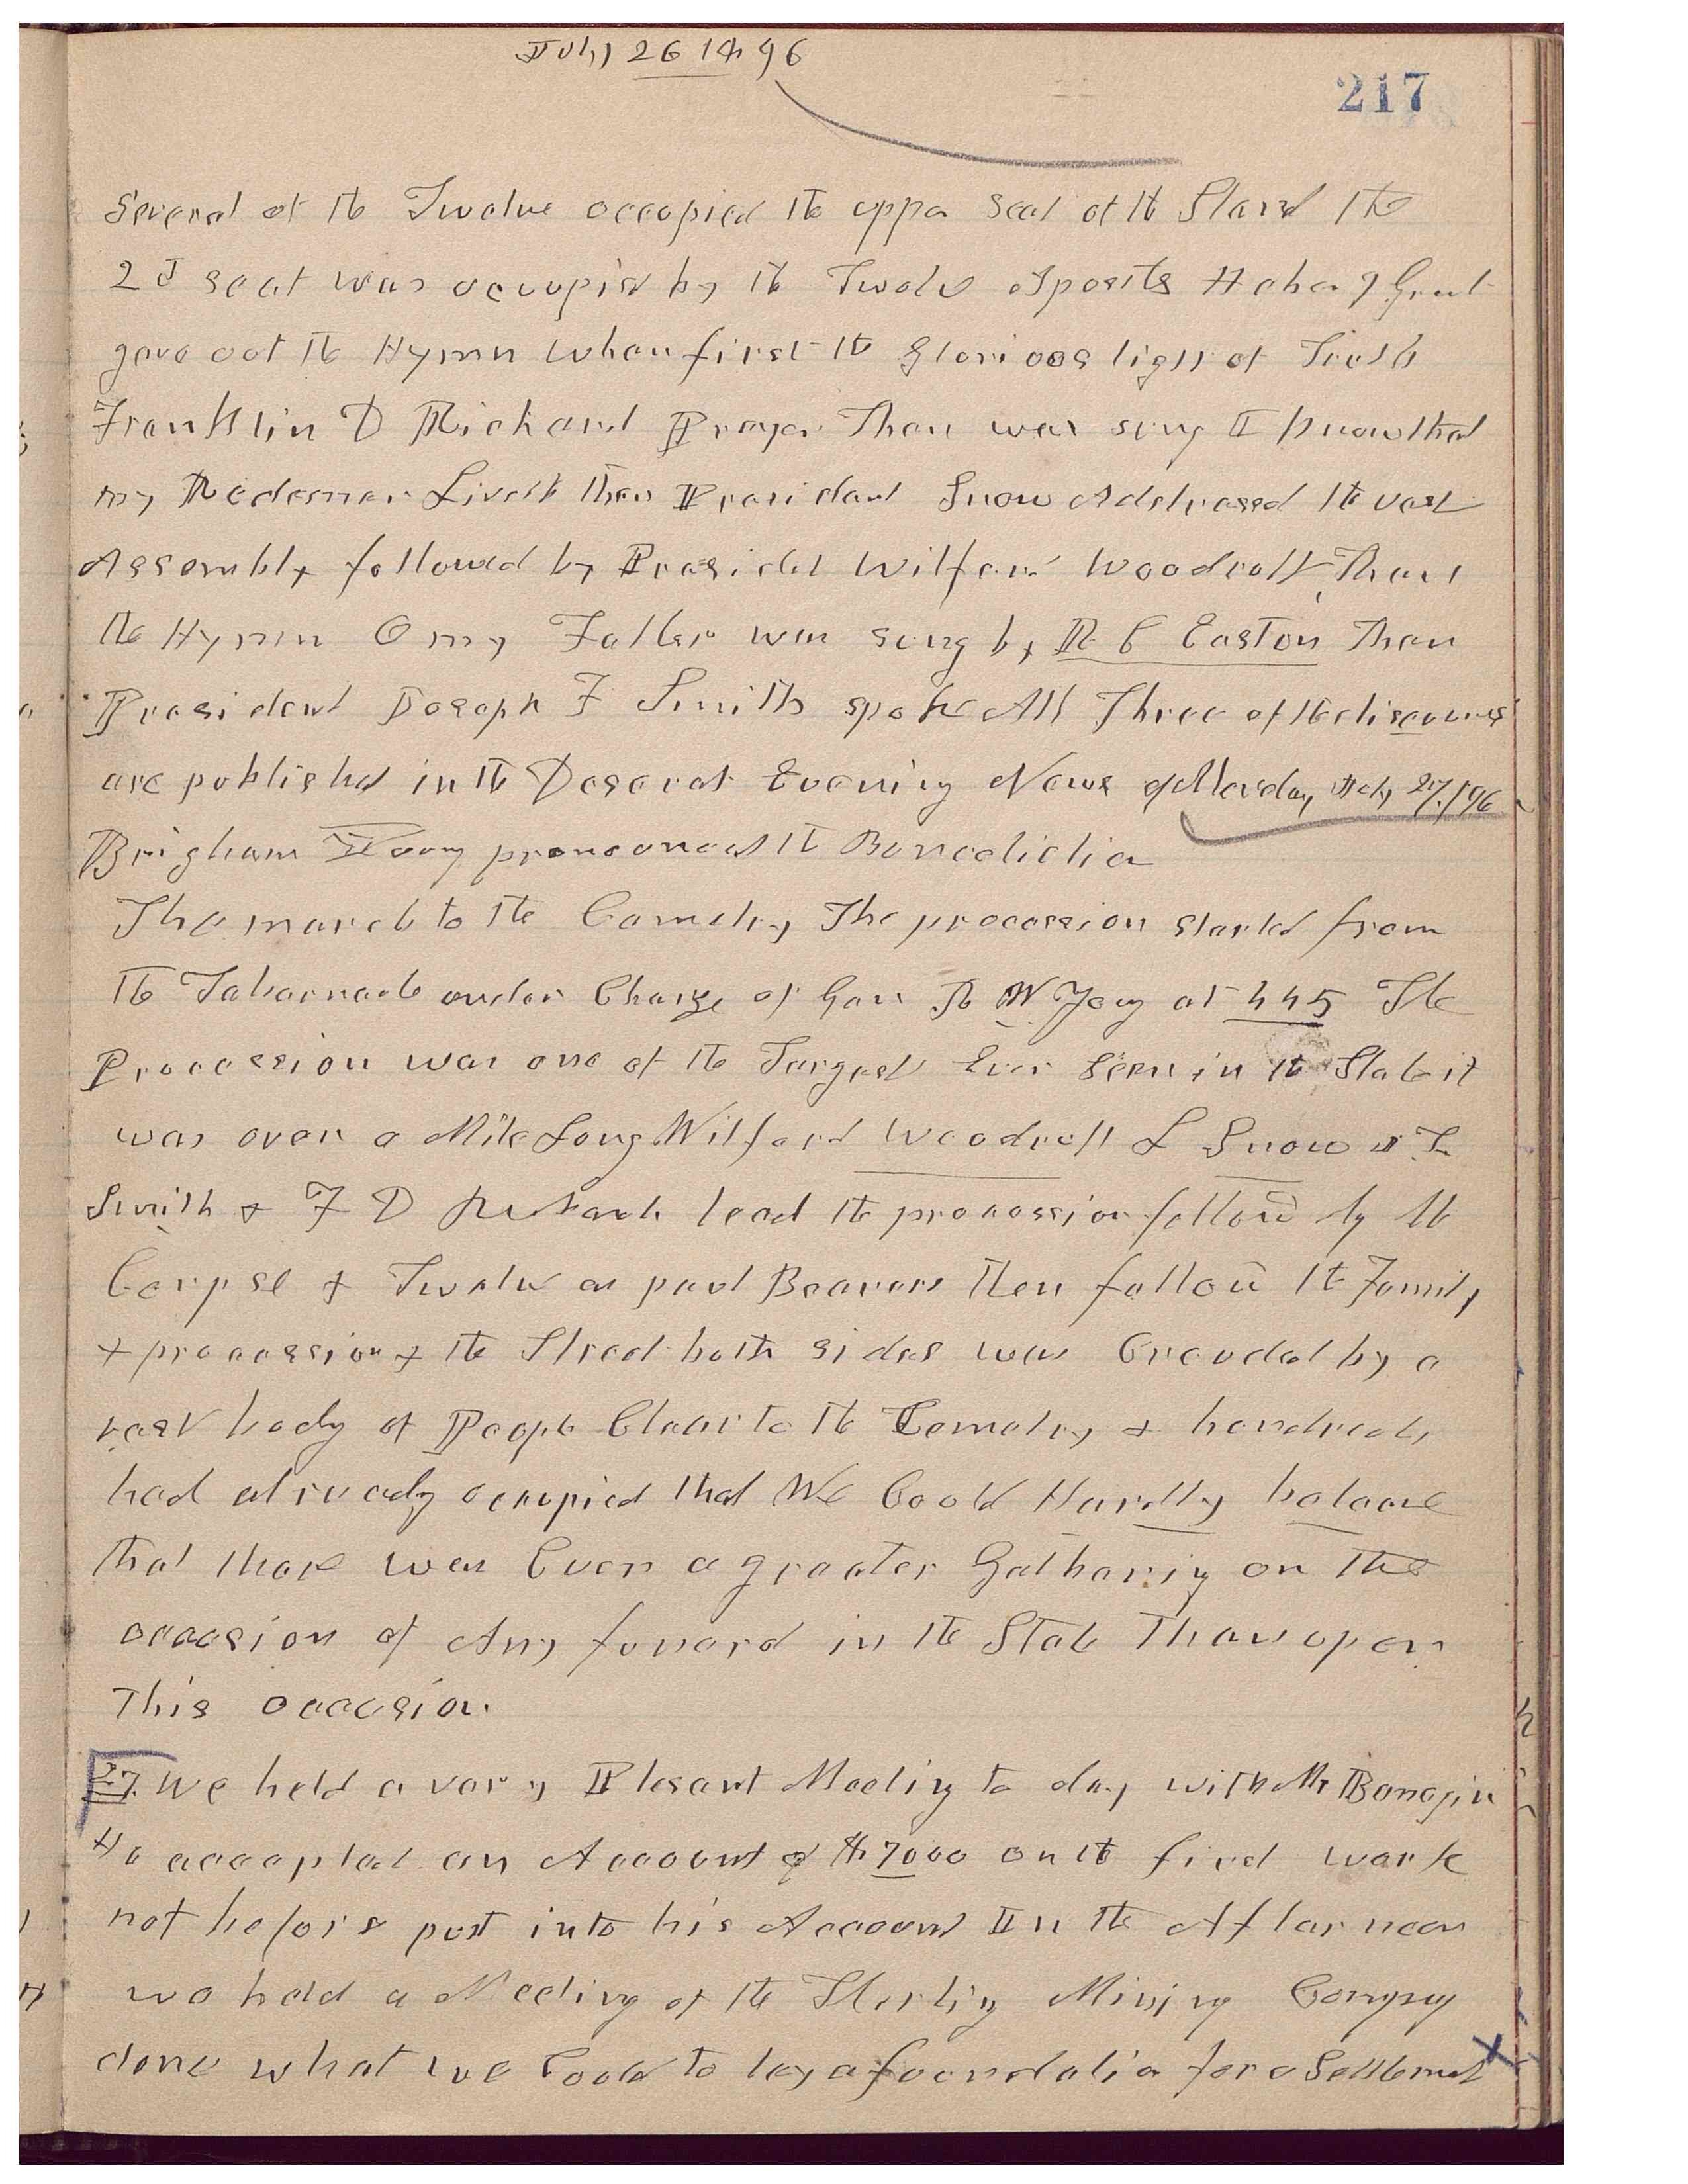 July 26 1896
217
Several of the Twelve occupied the upper seat of the Stand the
2d seat was occupied by the Twelve Apostls Heber J Grant
gave out the Hymn when first the Glorious light of Truth
Franklin D Richard Prayer Then was sung I know that
my Redeemer Liveth then President Snow Adstressed the vast
Assembly followed by Presidet Wilford Woodruff, Then
the Hymn O my Father was sung by R C Easton Then
President Joseph F Smith spoke All Three of the discourses
are published in the Deseret Evening News of Monday July 27/96
Brigham Young pronounced the Benedictin
The march to the Cemetery The procession started from
the Tabernacle under Charge of Gen R W Young at 445 The
Procession was one of the Largest Ever Seen in the State it
was over a Mile Long Wilford Woodruff L Snow J F
Smith & F D Richards lead the procession followd by the
Corpse & Twelve as paul Bearers then followd the Family
& procession & the Street both sides was Crouded by a
vast body of People Clear to the Cemetery & hundreds
had already occupied that We Could Hardly beleave
that there was Ever a greater Gathering on the
occasion of Any funerd in the State Than upon
This occasion.
27. We held a very Plesant Meeting to day with Mr Banagin
He accepted an Account of $7000 on the first work
not before put into his Account In the Afternoon
we held a Meeting of the Sterling Mining Company
done what we Could to lay a foundatin for a Settlemet X